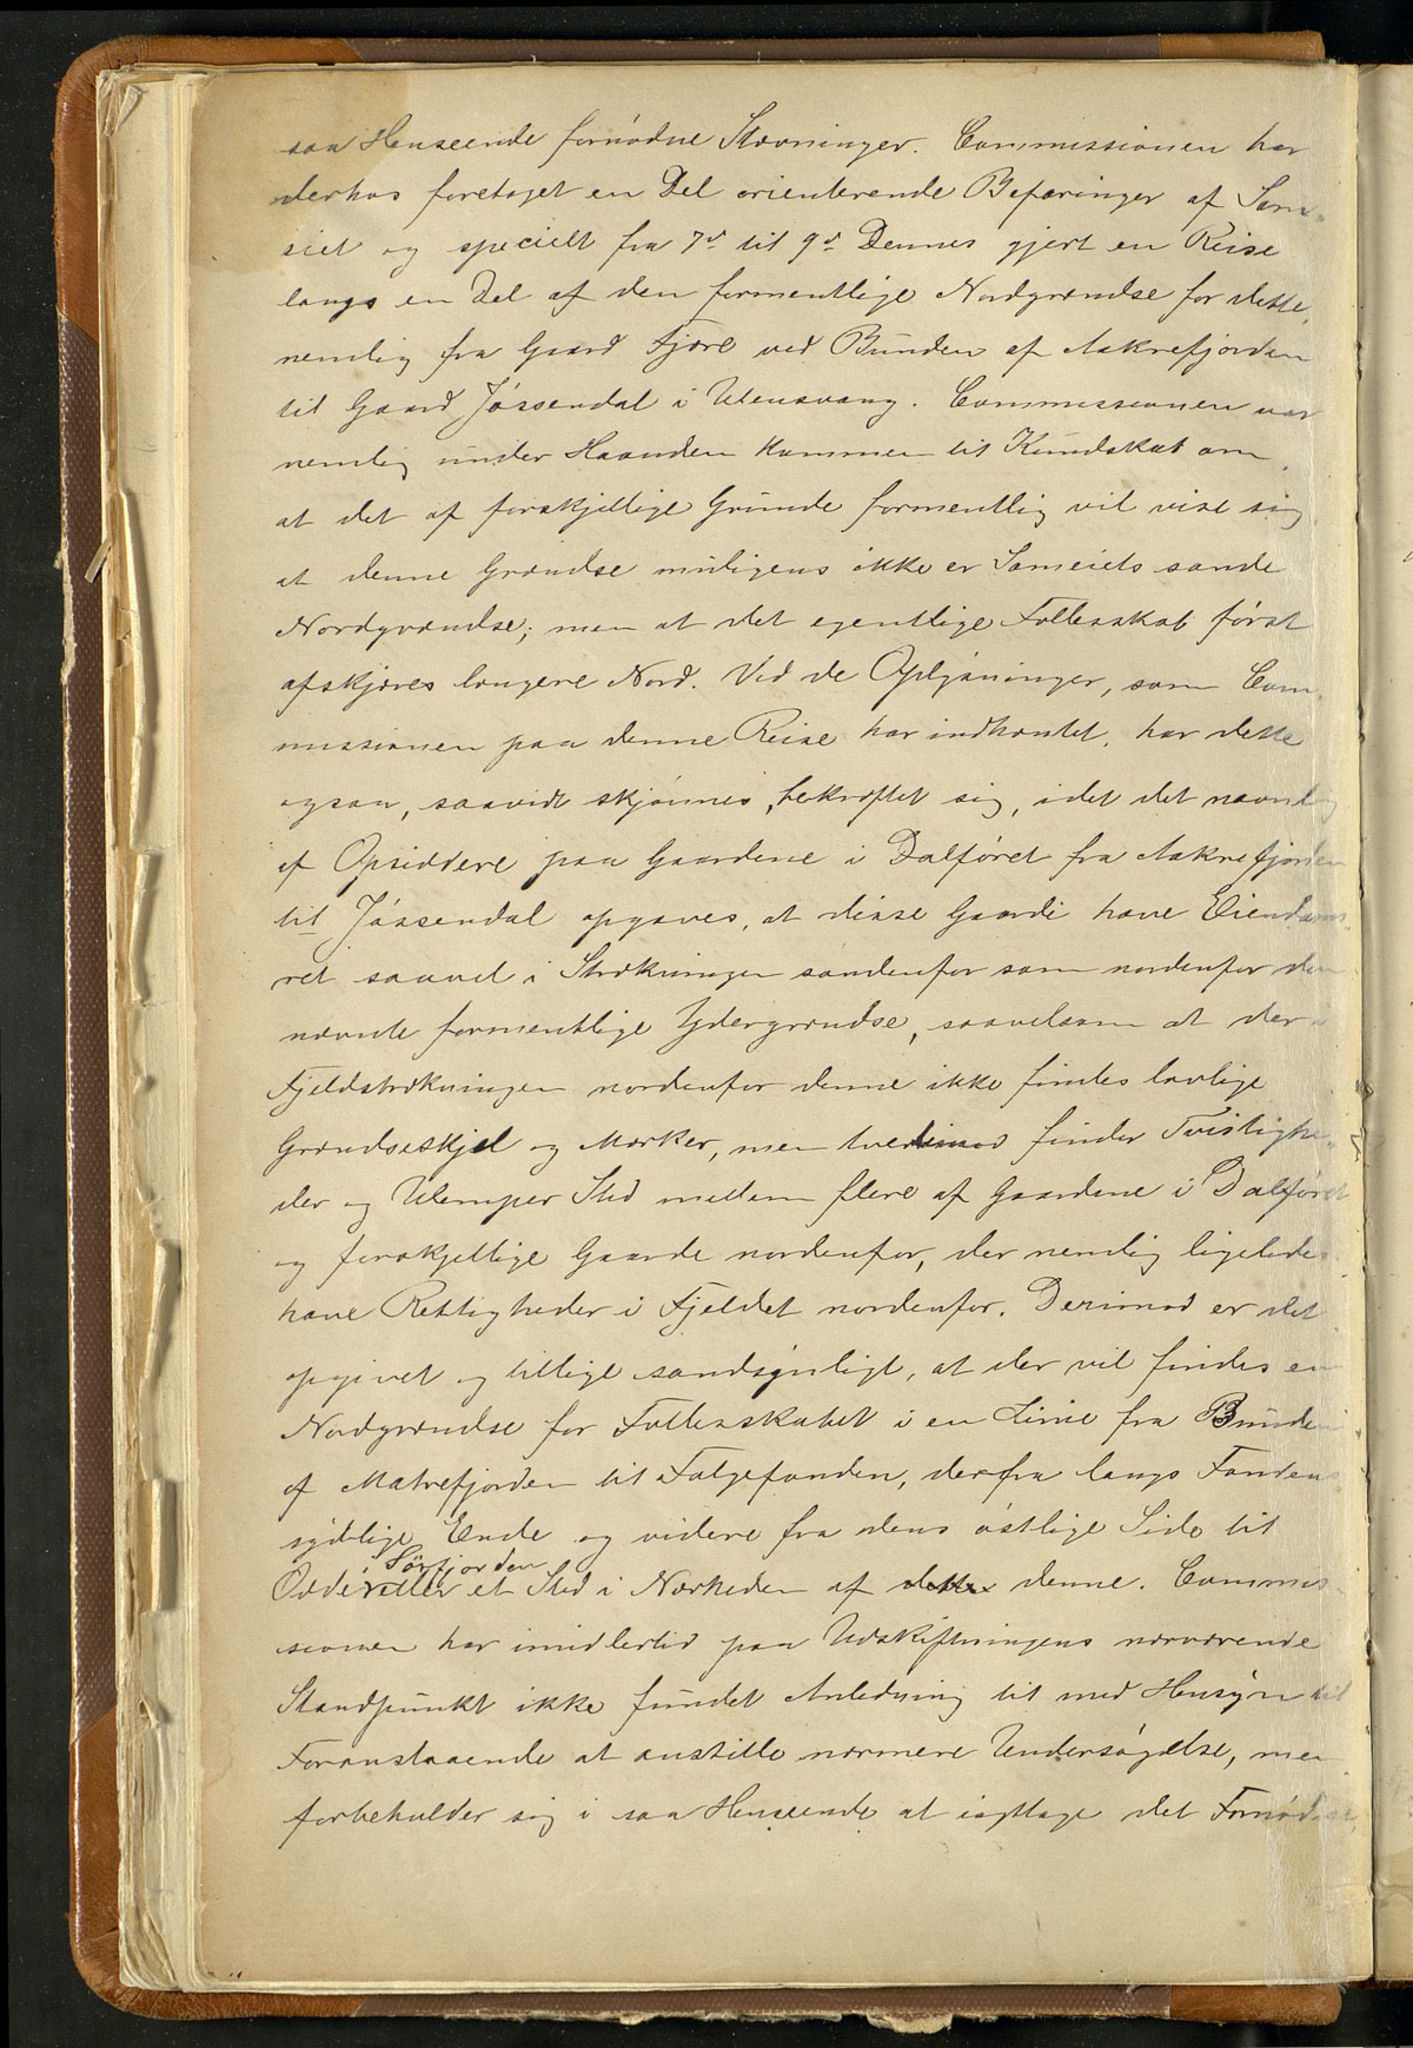 saa Henseende fornødne Stævninger. Commissionen har
derhos foretaget en Del orienterende Befaringer af Sam-
eiet og specielt fra 7de til 9de Dennes gjort en Reise
langs en Del af den formentlige Nordgrændse for dette,
nemlig fra Gaard Fjære ved Bunden af Aakrefjorden
til Gaard Jøssendal i Ullensvang. Commissionen var
nemlig under Haanden kommen til Kundskab om,
at det af forskjellige Grunde formentlig vil vise sig
at denne Grændse muligens ikke er Sameiets sande
Nordgrændse; men at det egentlige Fællesskab først
afskjæres længere Nord. Ved de Oplysninger, som Com-
missionen paa denne Reise har indhentet, har dette
ogsaa, saavidt skjønnes, bekræftet sig, idet det navnlig
af Opsiddere paa Gaardene i Dalføret fra Aakrefjorden
til Jøssendal opgaves, at disse Gaarde have Eiendoms-
ret saavel i Strækningen søndenfor som nordenfor den
nævnte formentlige Ydergrændse, saavelsom at der i
Fjeldstrækningen nordenfor denne ikke findes lovlige
Grændseskjel og Mærker, men tvertimod finder Tvistighe-
der og Ulemper Sted mellem flere af Gaardene i Dalføret
og forskjellige Gaarde nordenfor, der nemlig ligeledes
have Rettigheder i Fjeldet nordenfor. Derimod er det
opgivet og tillige sandsynligt, at der vil findes en
Nordgrændse for Fællesskabet i en Linie fra Bunden
af Matrefjorden til Folgefonden, derfra langs Fondens
sydlige Ende og videre fra dens østlige Side til
i Sørfjorden
Odde eller et Sted i Nærheden af dette denne. Commis-
sionen har imidlertid paa Udskiftningens nærværende
Standpunkt ikke fundet Anledning til med Hensyn til
Foranstaaende at anstille nærmere Undersøgelse, men
forbeholder sig i saa Henseende at iagttage det Fornødne,